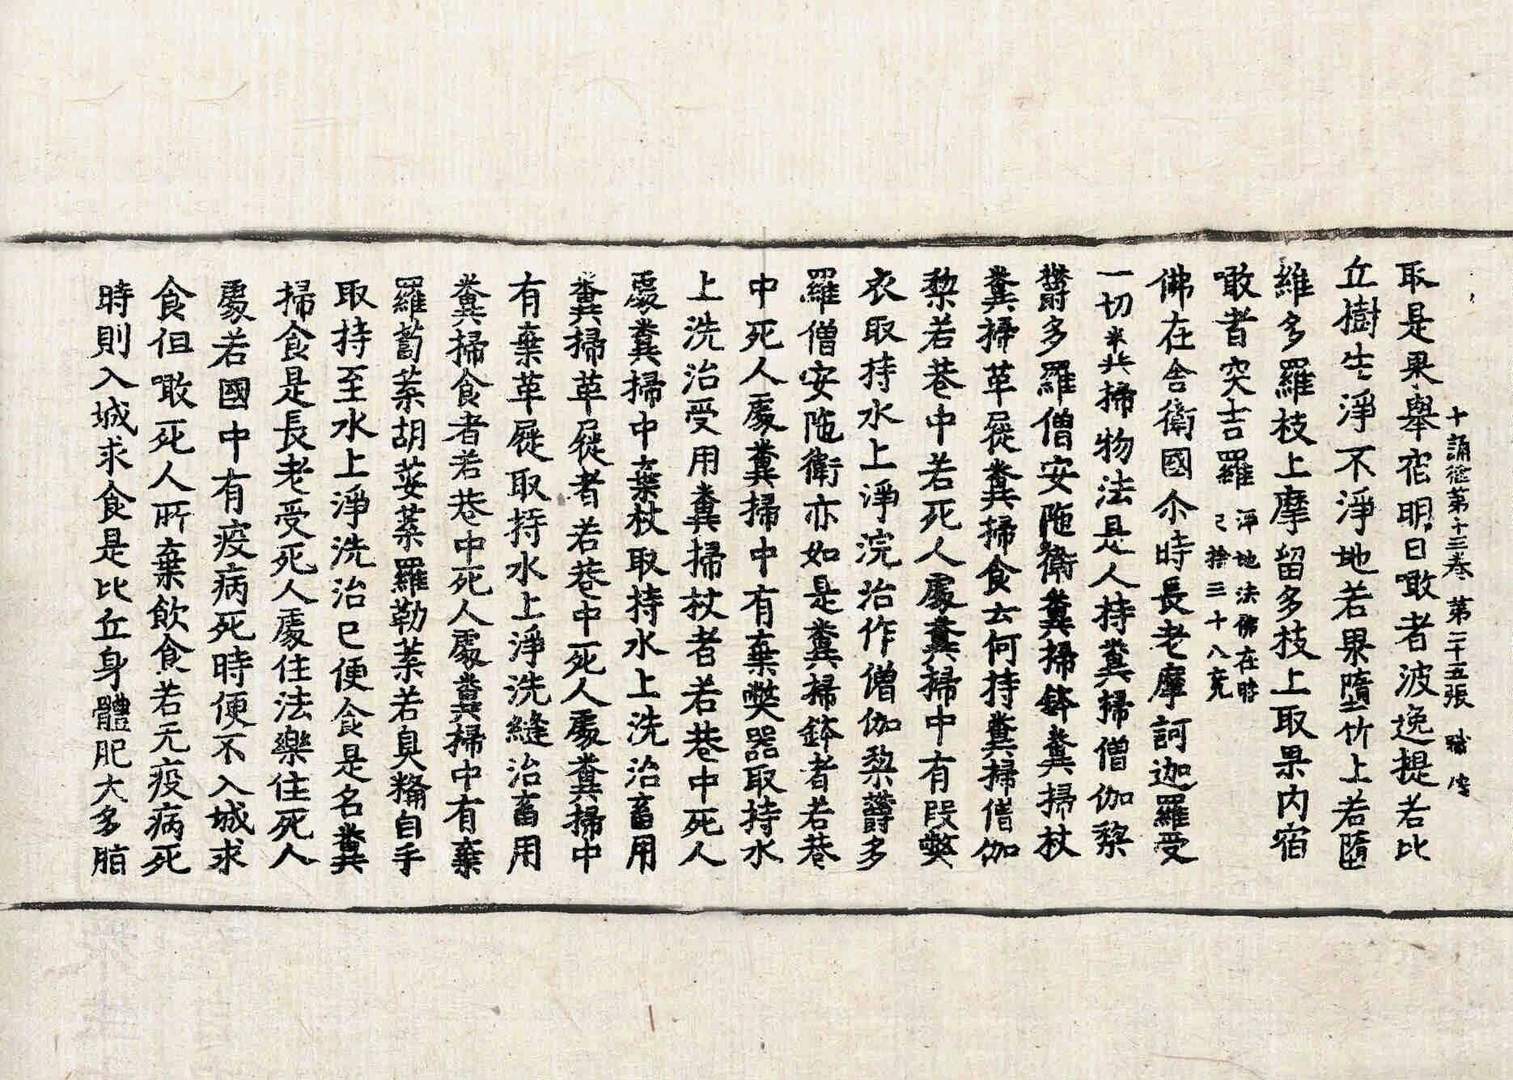 十誦律第十三卷　第二十五張　職
取是果舉宿明日噉者波逸提若比
丘樹生淨不淨地若果墮竹上若墮
維多羅枝上摩留多枝上取果內宿
噉者突吉羅　淨地法佛在時
已捨三十八竟
佛在舍衛國尒時長老摩訶迦羅受
一切糞掃物法是人持糞掃僧伽梨
欝多羅僧安陁衛糞掃鉢糞掃杖
糞掃革屣糞掃食云何持糞掃僧伽
梨若巷中若死人處糞掃中有段弊
衣取持水上淨浣治作僧伽梨欝多
羅僧安陁衛亦如是糞掃鉢者若巷
中死人處糞掃中有棄弊器取持水
上洗治受用糞掃杖者若巷中死人
處糞掃中棄杖取持水上洗治畜用
糞掃革屣者若巷中死人處糞掃中
有棄革屣取持水上淨洗縫治畜用
糞掃食者若巷中死人處糞掃中有棄
羅蔔菜胡荽菜羅勒菜若臭糒自手
取持至水上淨洗治已便食是名糞
掃食是長老受死人處住法樂住死人
處若國中有疫病死時便不入城求
食但噉死人所棄飲食若无疫病死
時則入城求食是比丘身體肥大多脂